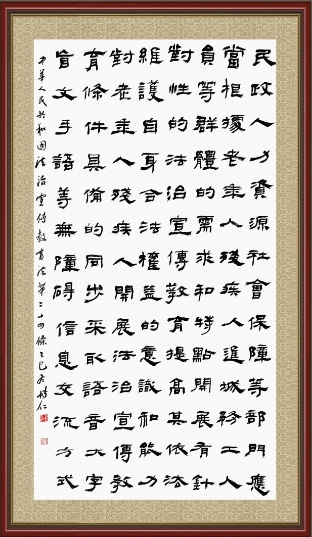 民政人力資源社會保障等部門應
當根據老年人殘疾人進城務工人
員等群體的需求和特點開展有針
對性的法治宣傳教育提高其依法
維護自身合法權益的意識和能力
對老年人殘疾人開展法治宣傳教
育條件具備的同步采取語音大字
盲文手語等無障礙信息交流方式
中華人民共和國法治宣傳教育法第二十四條乙巳